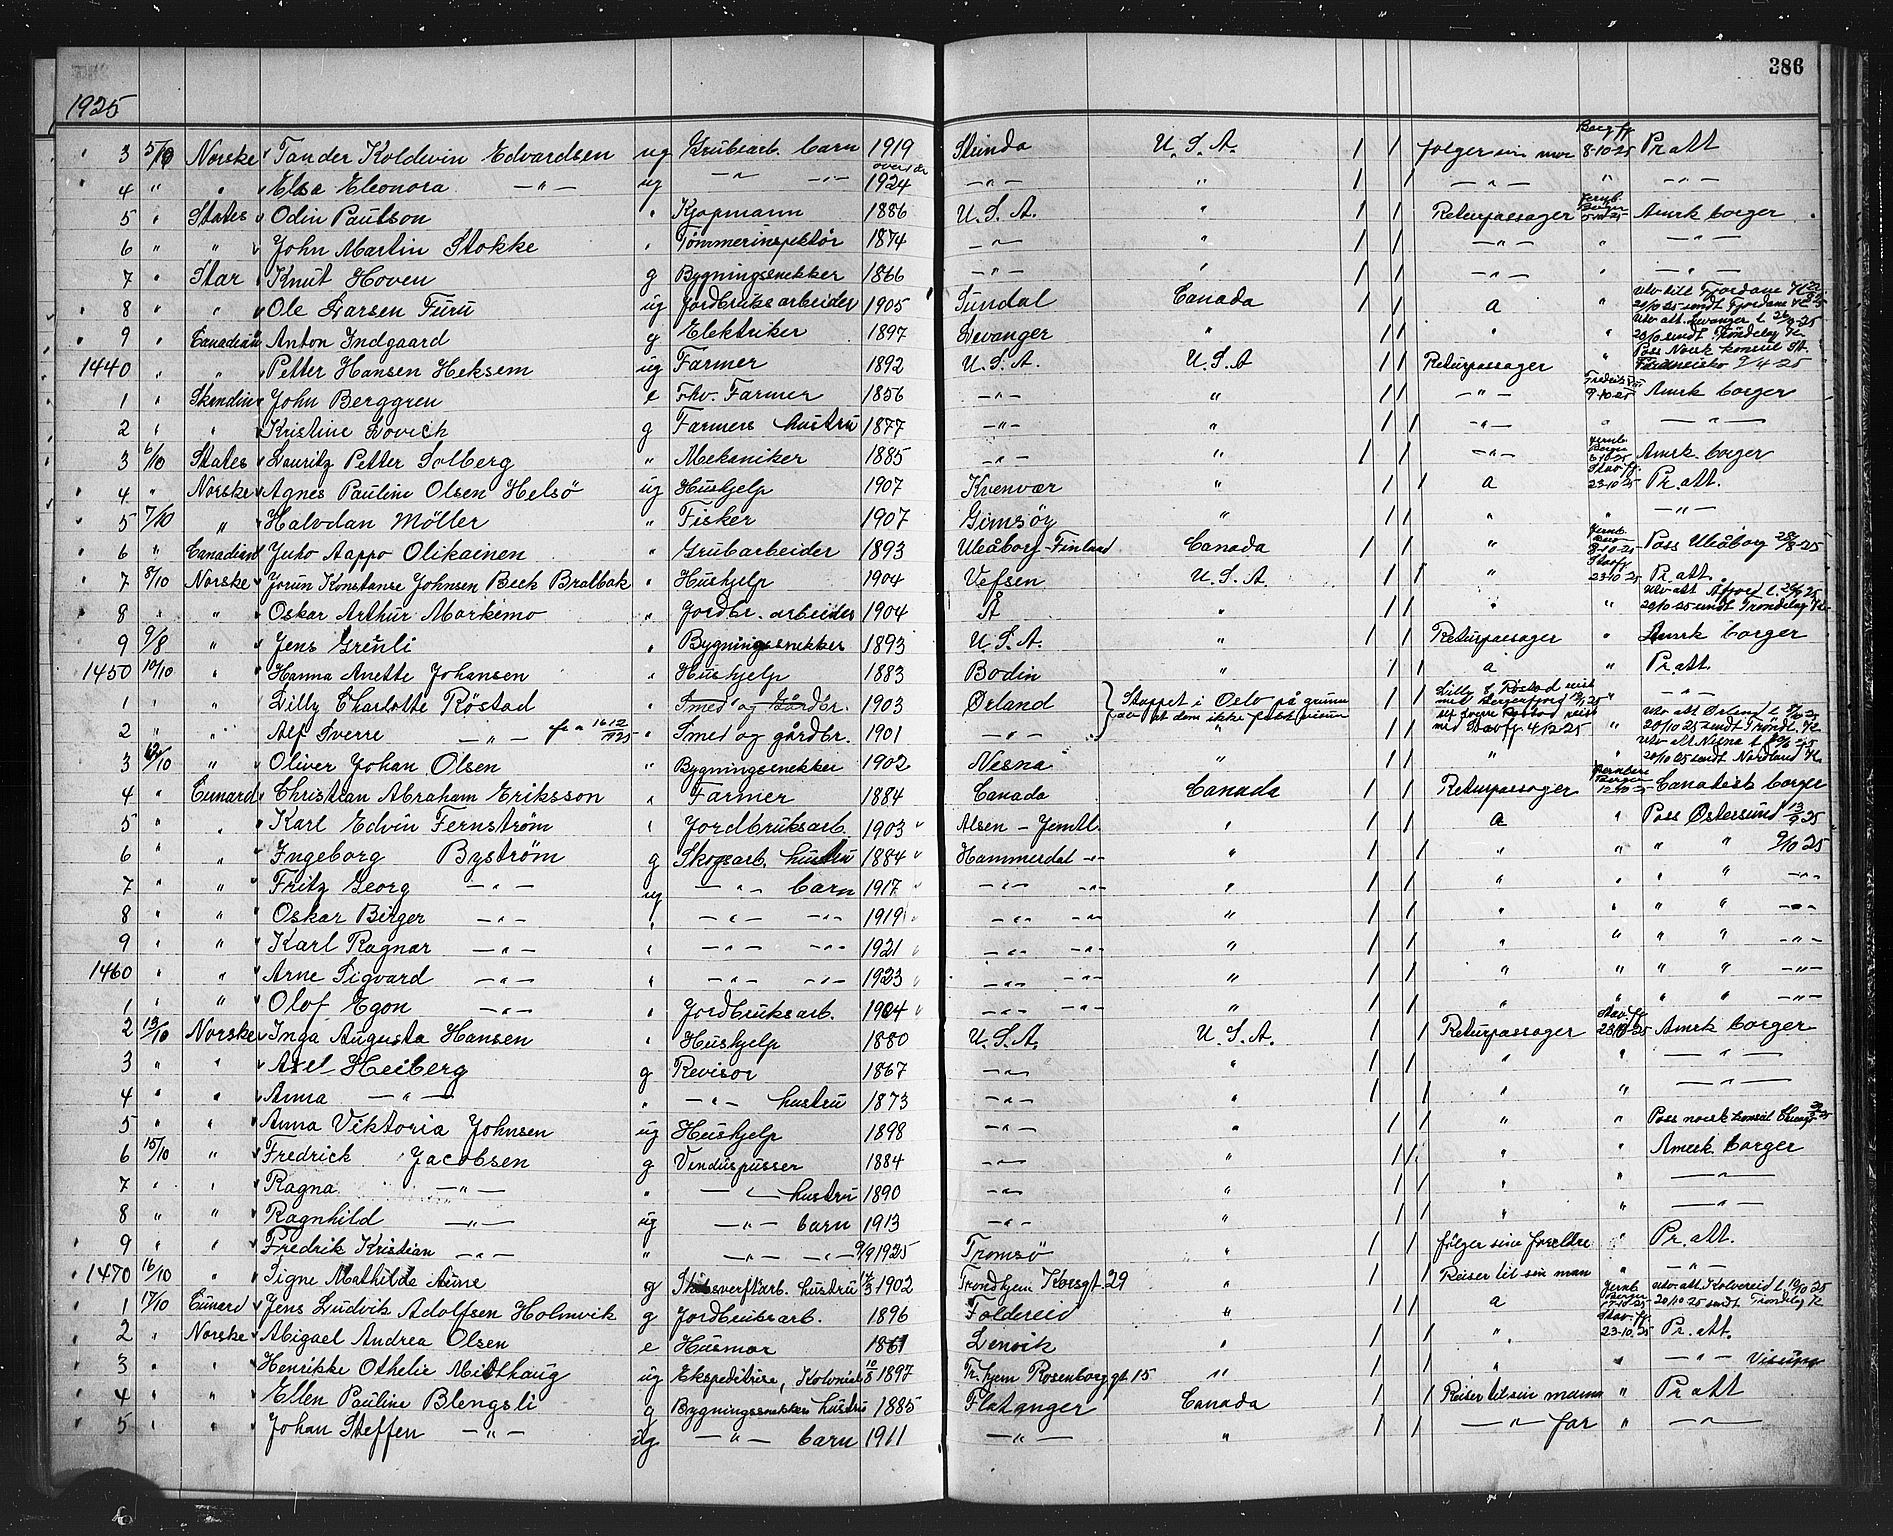 386
1925
3 5/10 Norske Tander Koldevin Edvardsen ug Grubearb. barn 1919 Stunda U.S.A. 1 1 følger sin mor Berg.fj. 8-10-25 Pr att
4 " " Elsa Eleonora —"— ug —"— —"— over 1 år 1924 —"— " 1 1 —"— " —"—
5 " States Odin Paulson " Kjøpmann 1886 U.S.A. " 1 1 Returpassager Jernb. Bergen Amrk borger
6 " " John Martin Stokke " Tømmerinspektør 1874 —"— " 1 1 —"— " —"—
7 " Star Knut Hoven g Bygningssnekker 1866 —"— " 1 1 —"— " —"—
8 " " Ole Larsen Furu ug Jordbruksarbeider 1905 Sundal Canada 1 1 a "
9 " Canadian Anton Indgaard g Elektriker 1897 Levanger " 1 1 " "
1440 " " Petter Hansen Heksem ug Farmer 1892 U.S.A. U.S.A 1 1 Returpassager " Pass Norsk konsul St. Francisko 9/4-25
1 " Skandin John Berggren e Fhv. Farmer 1856 —"— " 1 1 —"— 9-10-25 Amrk borger
2 " " Kristine Lovick g Farmers hustru 1877 —"— " 1 1 —"— " —"—
3 6/10 States Lauritz Petter Solberg " Mekaniker 1885 —"— " 1 1 —"— Jernb. Bergen 6-10-25 Amrk. borger
4 " Norske Agnes Pauline Olsen Helsö ug Hushjelp 1907 Kvenvær " 1 1 a Stav.fj. 23-10-25 Pr. att.
5 7/10 " Halvdan Möller " Fisker 1907 Gimsöy " 1 1 " " —"—
6 " Canadian Juho Aappo Olikainen " Grubarbeider 1893 Uleåborg-Finland Canada 1 1 " 8-10-25 Pass Uleåborg 28/8-25
7 8/10 Norske Jorun Konstanse Johnsen Beck Bralbak " Hushjelp 1904 Vefsen U.S.A. 1 1 " Stavfj 23-10-25 Pr. att.
8 " " Oskar Arthur Markemo " Jordbr. arbeider 1904 Å " 1 1 " "
9 9/8 " Jens Grenli " Bygningssnekker 1893 U.S.A. " 1 1 Returpassager " Amrk borger
1450 10/10 " Hanna Anette Johansen " Hushjelp 1883 Bodin " 1 1 a " Pr. att.
1 " " Lilly Charlotte Röstad " Smed og Gårdbr. 1903 Ørland Stoppet i Oslo på grunn 1 1 Lilly C. Röstad reist " —"—
2 " " Alf Sverre —"— " Smed og gårdbr. 1901 —"— av at dem ikke fikk visum 1 1 med Stavfj. 4/12-25
3 12/10 " Oliver Johan Olsen " Bygningssnekker 1902 Nesna " 1 1 " "
4 " Cunard Christian Abraham Eriksson " Farmer 1884 Canada Canada 1 1 Returpassager 12-10-25 Canadisk borger
5 " " Karl Edvin Fernström " Jordbruksarb. 1903 Alsen - Jemtl. " 1 1 a " Pass Östersund 12/9 25
6 " " Ingeborg Byström g Skogsarb. hustru 1884 Hammerdal —"— " 1 1 " " " " 9/10 25
7 " " Fritz Georg —"— ug —"— barn 1917 —"— —"— " 1 1 " " " " —"—
8 " " Oskar Birger —"— " —"— —"— 1919 —"— —"— " 1 1 " " " " —"—
9 " " Karl Ragnar —"— " —"— —"— 1921 —"— —"— " 1 1 " " " " —"—
1460 " " Arne Sigvard —"— " —"— —"— 1923 —"— —"— " 1 1 " " " " —"—
1 " " Olof Egon —"— " Jordbruksarb. 1904 —"— —"— " 1 1 " " " " —"—
2 13/10 Norske Inga Augusta Hansen " Hushjelp 1880 U.S.A. U.S.A. 1 1 Returpassager Stav.fj. 23-10-25 Amrk borger
3 " " Axel Heiberg g Revisor 1867 —"— " 1 1 " " —"—
4 " " Anna —"— " —"— hustru 1873 —"— " 1 1 " " —"—
5 " " Anna Viktoria Johnsen ug Hushjelp 1898 —"— " 1 1 " " Pass norsk konsul
6 15/10 " Fredrick Jacobsen g Vinduspusser 1884 —"— " 1 1 " " Amerk. borger
7 " " Ragna —"— " —"— hustru 1890 —"— " 1 1 " " —"—
8 " " Ragnhild —"— ug —"— barn 1913 —"— " 1 1 " " —"—
9 " " Fredrik Kristian —"— " —"— —"— 9/9 1925 Tromsö " 1 1 følger sine foreldre " Pr. att.
1470 16/10 " Signe Mathilde Aune g hustru 1902 Trondhjem Korsgt. 29 " 1 1 Reiser til sin man " —"—
1 17/10 Cunard Jens Ludvik Adolfsen Holmvik g Jordbruksarb. 1896 Foldereid " 1 1 a Jernb. Bergen 17-10-25
2 " Norske Abigael Andrea Olsen e Husmor 1861 Lenvik " 1 1 " Stav.fj. 23-10.25 Pr. att.
3 " " Henrikke Othelie Midthaug ug Ekspeditrise, Kolonial 10/8 1897 Tr.hjem Rosenborg gt 15 " 1 1 " " —"—
4 " " Ellen Pauline Blengsli g Bygningssnekkers hustru 1885 Flatanger Canada 1 1 Reiser til sin mann " Pr att
5 " " Johan Steffen —"— ug —"— barn 1911 —"— " 1 1 —"— far " —"—